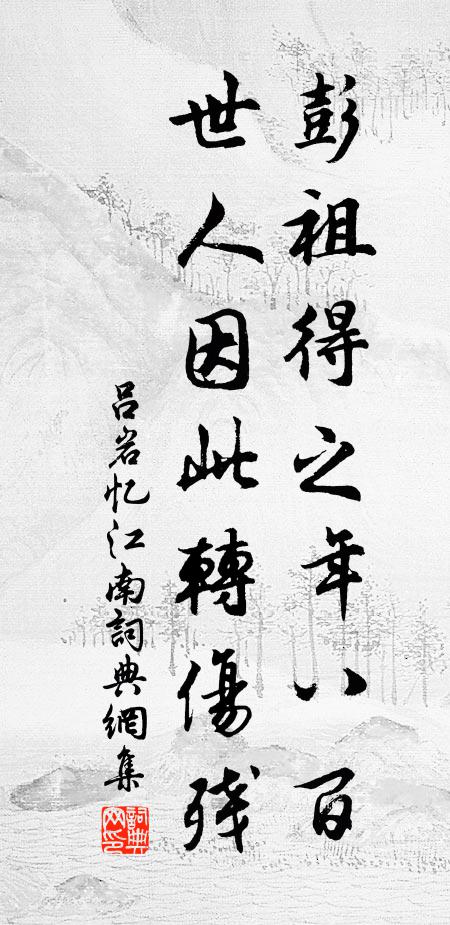 彭祖得之年八百
世人因此轉傷残
吕岩忆江南詞典網集
詞典網印